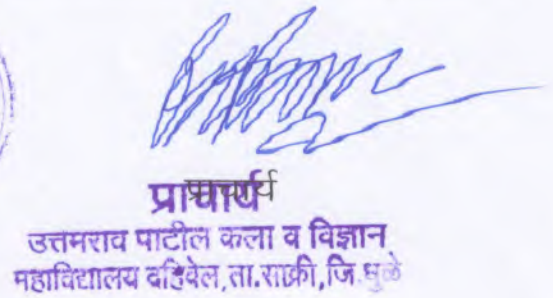 प्राचार्य
प्राचार्य
उत्तमराव पाटील कला व विज्ञान
महाविद्यालय दहिवेल, ता.साक्री, जि.धुळे